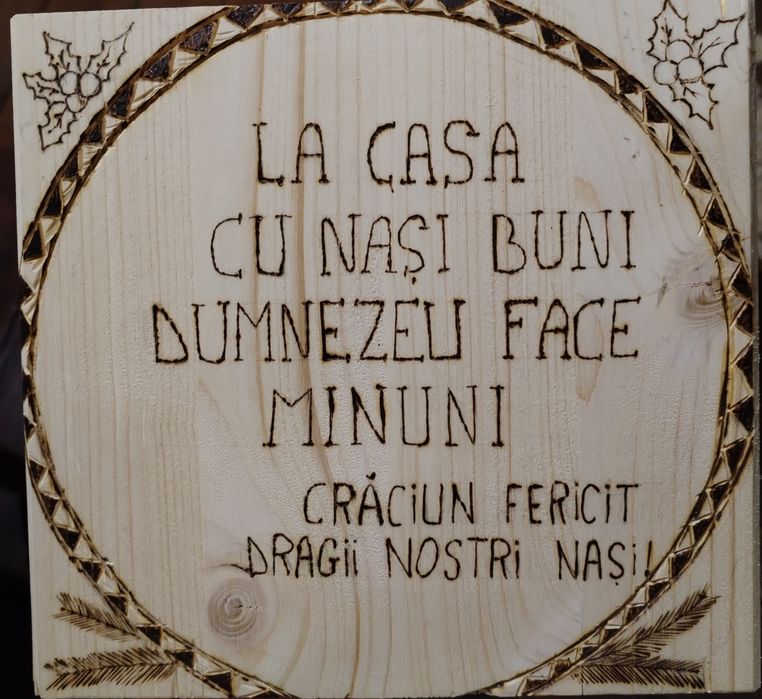 LA CASA
CU NAȘI BUNI
DUMNEZEU FACE
MINUNI
CRĂCiUN FERiCiT
DRAGii NOSTRi NAȘi!